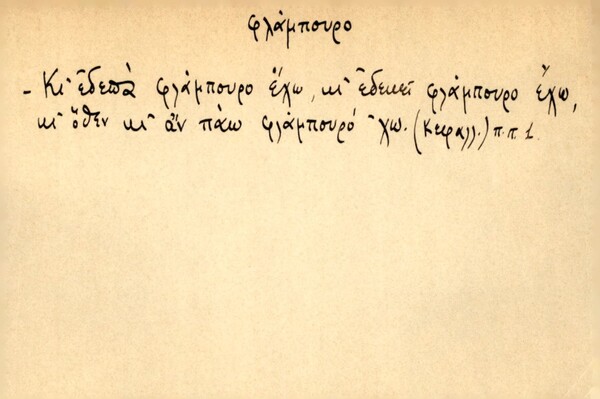 φλάμπουρο
- Κι' ἐδεπὰ φλάμπουρο ἔχω, κι' ἐδεκεῖ φλάμπουρο ἔχω,
κι' ὅθεν κι' ἂν πάω φλάμπουρό 'χω. (Κεφαλλ.) π.π 1.